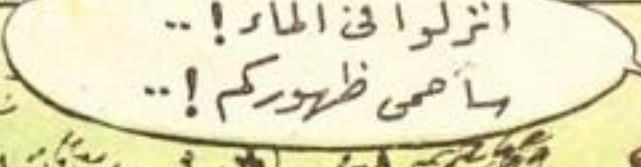 انزلوا فى الماء ! ..
سأحمى ظهوركم ! ..